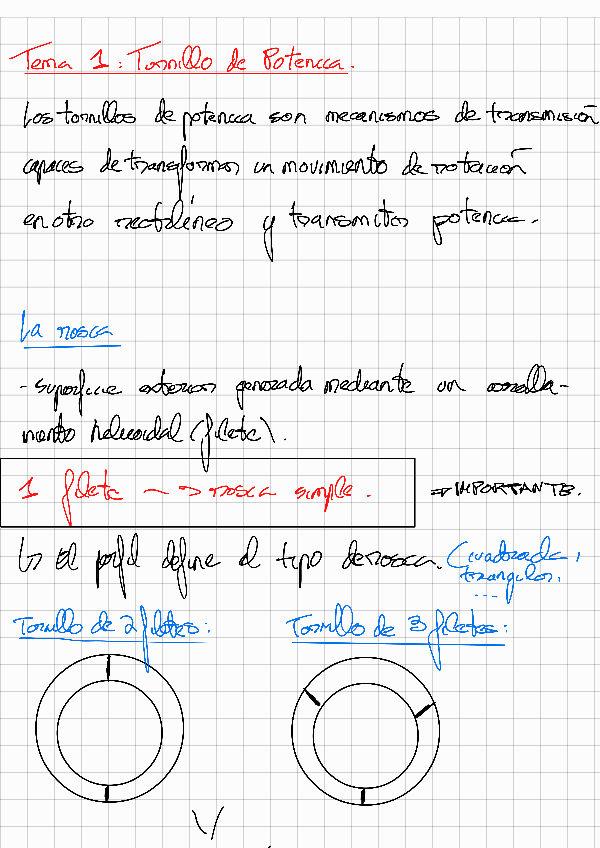 Tema 1: Tornillo de Potencia.
Los tornillos de potencia son mecanismos de transmisión
capaces de transformar un movimiento de rotación
en otro rectilíneo y transmitir potencia.
La rosca
- superficie exterior generada mediante un enrolla-
miento helicoidal (filete).
1 filete → rosca simple.
⇒ IMPORTANTE.
↳ El perfil define el tipo de rosca. (cuadrada,
triangular,
...
Tornillo de 2 filetes:
Tornillo de 3 filetes: